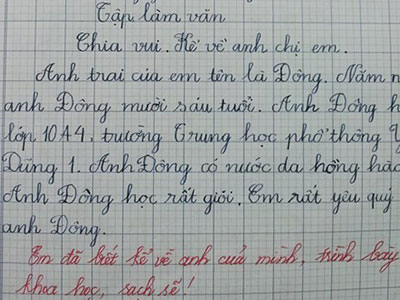 Tập làm văn
Chia vui. Kể về anh chị em.
Anh trai của em tên là Đông. Năm n
anh Đông mười sáu tuổi. Anh Đông h
lớp 10A4, trường Trung học phổ thông Y
Dũng 1. Anh Đông có nước da hồng hào
Anh Đông học rất giỏi. Em rất yêu quý
anh Đông.
Em đã biết kể về anh của mình, trình bày
khoa học, sạch sẽ!